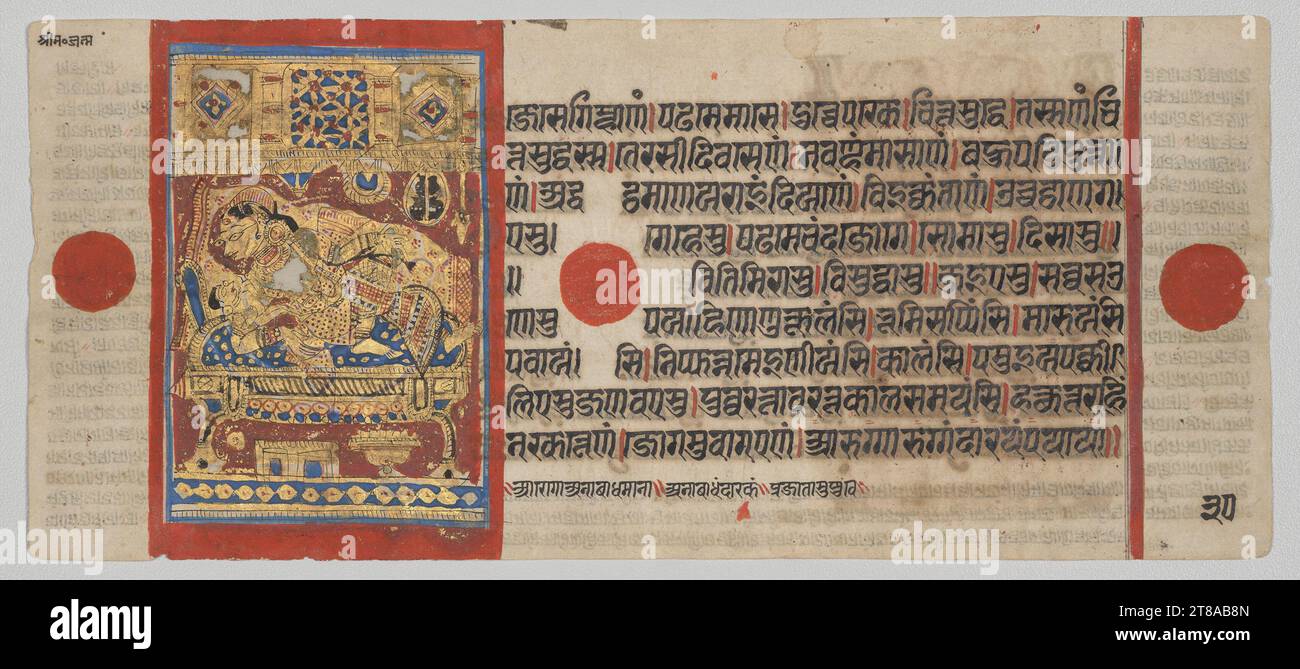 श्रीम०जन्म
जासेगिम्हाणं।पढमेमासे।दोच्चेपरके।चित्तसुद्धे।तस्सणंचि
त्तसुद्धस्स।तेरसीदिवसेणं।नवण्हंमासाणं।बहुपडिपुन्ना।
णं।अद्ध ट्ठमाणयराइंदियाणं।विइक्कंताणं।उच्चट्ठाणग।
एसु। गहेसु।पढमेचंदजोगे।सोमासु।दिसासु॥
॥ वितिमिरासु।विसुद्धासु॥जइएसु।सव्वसउ
णेसु पयाहिणाणुकूलंसि।भूमिसप्पिंसि।मारुयंसि
पवायं। सि।निप्फन्नमेइणीयंसि।कालंसि।पमुइयपक्की
लिएसुजणवएसु।पुव्वरत्तावरत्तकालसमयंसि।हत्थुत्तराहिं
नरकत्तेणं।जोगमुवागएणं।आरुग्गारुग्गंदारयंपयाया॥
॥आरोगाअनाबाधमाना॥अनाबाधंदारकं॥प्रजातासुषुवे
३०
alamy
Image ID: 2T8AB8N
www.alamy.com